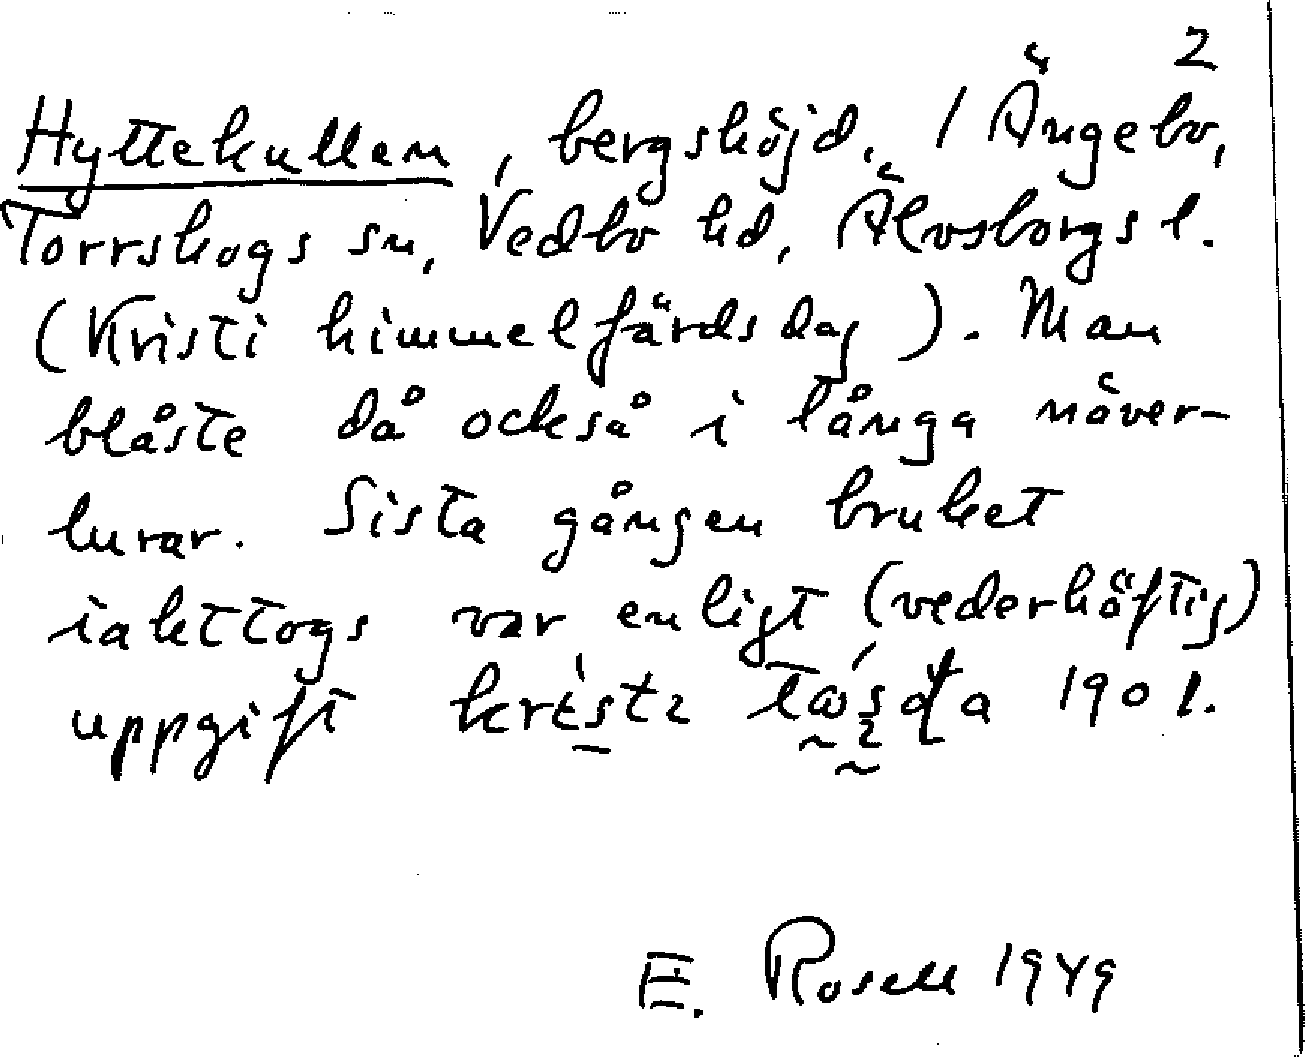 2
Hyttekullen, bergshöjd, / Ängebo,
Torrskogs sn, Vedbo hd, Älvsborgs l.
(Kristi himmelfärdsdag). Man
blåste då också i långa näver-
lurar. Sista gången bruket
iakttogs var enligt (vederhäftig)
uppgift 1901.
E. Rosell 1949